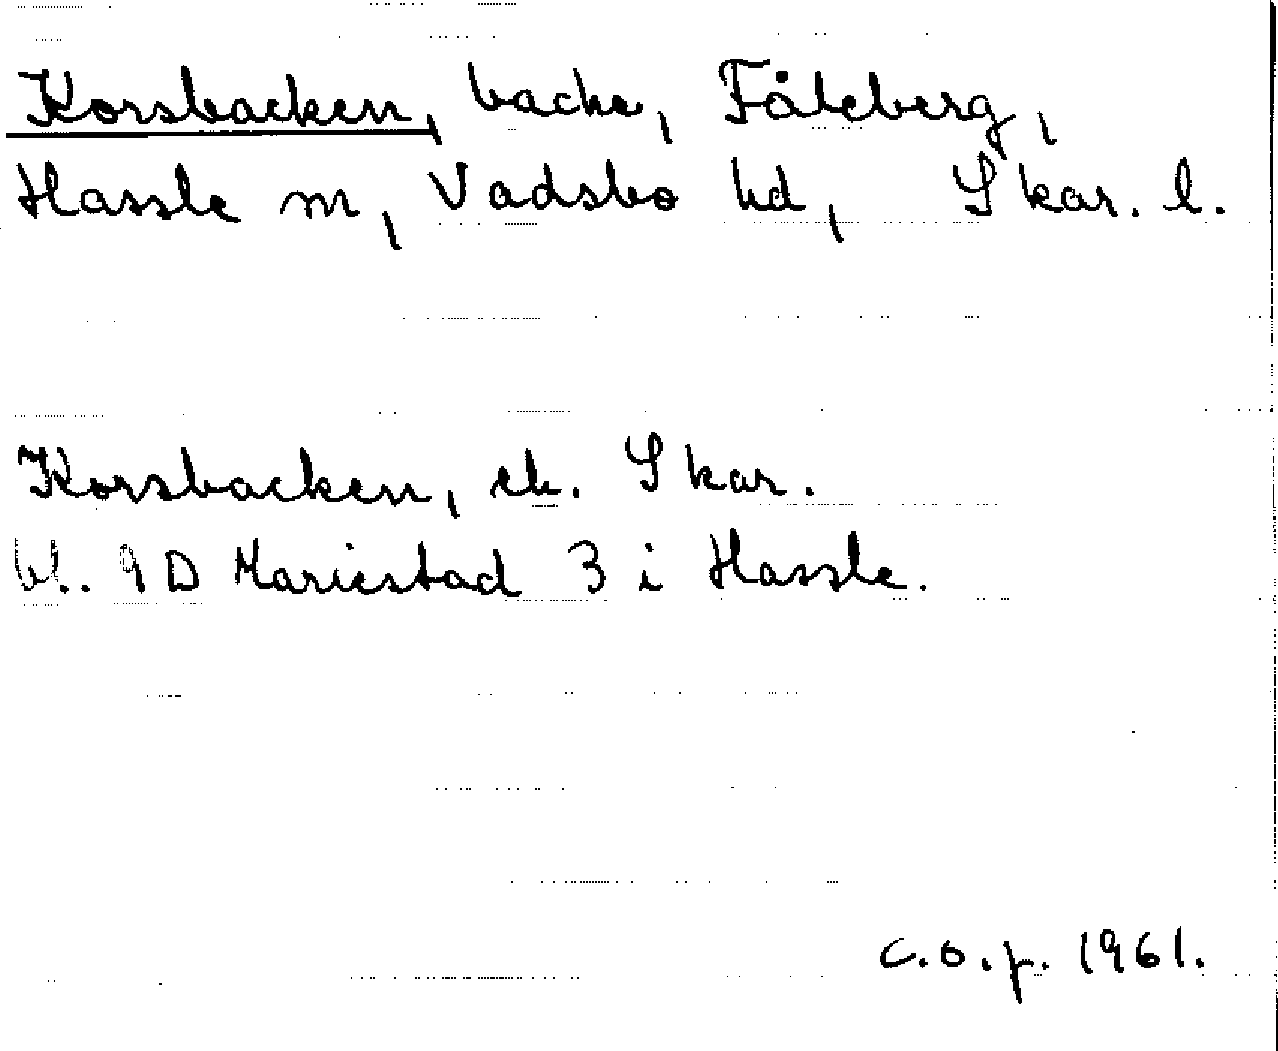 Korsbacken, backe, Fåleberg,
Hassle sn, Vadsbo hd, Skar. l.
Korsbacken, ek. Skar.
bl. 9D Mariestad 3 i Hassle.
C.O.P. 1961.